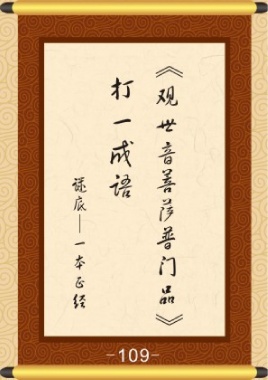 《观世音菩萨普门品》
打一成语
谜底——一本正经
-109-